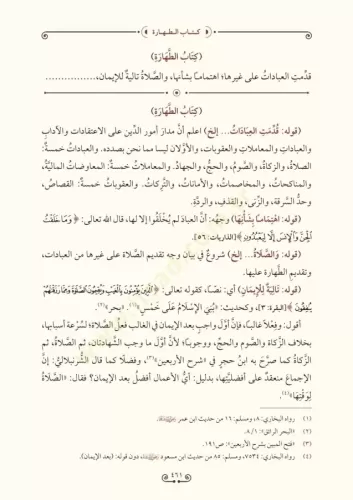 كتاب الطهارة
﴿كِتَابُ الطَّهَارَةِ﴾
قدِّمتِ العباداتُ على غيرِها؛ اهتمامًا بشأنِها، والصَّلاةُ تاليةٌ للإيمان،................
﴿كِتَابُ الطَّهَارَةِ﴾
(قوله: قُدِّمَتِ العِبَادَاتُ... إلخ) اعلم أنَّ مدارَ أمورِ الدِّين على الاعتقادات والآدابِ
والعباداتِ والمعاملاتِ والعقوبات، والأوَّلان ليسا مما نحن بصدده. والعباداتُ خمسةٌ:
الصلاةُ، والزكاةُ، والصَّومُ، والحجُّ، والجهادُ. والمعاملاتُ خمسةٌ: المعاوضاتُ الماليَّةُ،
والمناكحاتُ، والمخاصماتُ، والأماناتُ، والتَّرِكاتُ. والعقوباتُ خمسةٌ: القصاصُ،
وحدُّ السَّرقة، والزِّنى، والقذفِ، والردَّةِ.
(قوله: اهْتِمَامًا بِشَأْنِهَا) وجهُه: أنَّ العبادَ لم يُخْلَقُوا إلا لها، قال الله تعالى: ﴿وَمَا خَلَقْتُ
الْجِنَّ وَالْإِنسَ إِلَّا لِيَعْبُدُونِ﴾ [الذاريات: ٥٦].
(قوله: وَالصَّلَاةُ... إلخ) شروعٌ في بيان وجه تقديم الصَّلاة على غيرها من العبادات،
وتقديمِ الطَّهارة عليها.
(قوله: تَالِيَةٌ لِلْإِيمَانِ) أي: نصًّا، كقوله تعالى: ﴿الَّذِينَ يُؤْمِنُونَ بِالْغَيْبِ وَيُقِيمُونَ الصَّلَاةَ وَمِمَّا رَزَقْنَاهُمْ
يُنفِقُونَ﴾ [البقرة: ٣]، وكحديث: «بُنِيَ الإِسْلَامُ عَلَى خَمْسٍ»(١). «بحر»(٢).
أقول: وفعلًا غالبًا، فإنَّ أوَّلَ واجبٍ بعد الإيمان في الغالب فعلُ الصَّلاة؛ لسُرعة أسبابها،
بخلاف الزَّكاة والصَّوم والحجِّ، ووجوبًا؛ لأنَّ أوَّل ما وجب الشَّهادتان، ثم الصَّلاةُ، ثم
الزَّكاةُ كما صرَّح به ابنُ حجرٍ في «شرح الأربعين»(٣)، وفضلًا كما قال الشُّرنبلاليُّ: إنَّ
الإجماعَ منعقدٌ على أفضليَّتها، بدليل: أيُّ الأعمال أفضلُ بعد الإيمان؟ فقال: «الصَّلَاةُ
لِوَقْتِهَا»(٤).
(١) رواه البخاري: ٨، ومسلم: ١٦ من حديث ابن عمر
(٢) «البحر الرائق»: ٨/١.
(٣) «فتح المبين بشرح الأربعين»: ص١٩١.
(٤) رواه البخاري: ٧٥٣٤، ومسلم: ٨٥ من حديث ابن مسعود، دون قوله: (بعد الإيمان).
٤٦١